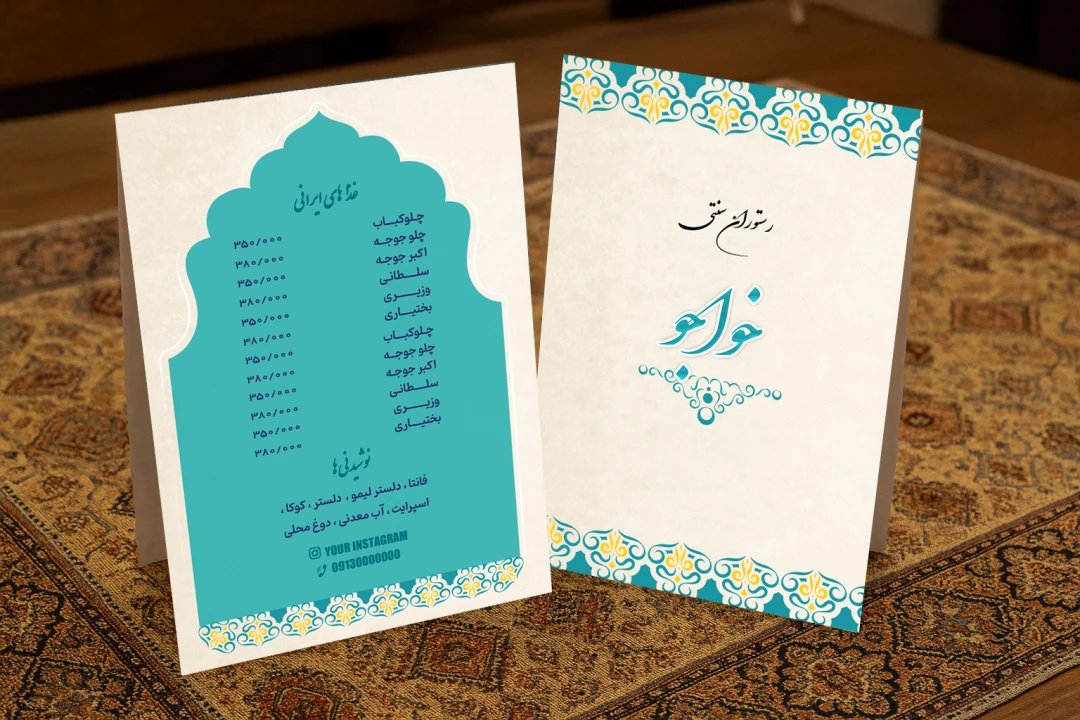 رستوران سنتی
خواجو
غذاهای ایرانی
چلوکبـاب ۳۵۰/۰۰۰
چلو جوجه ۳۸۰/۰۰۰
اکبر جوجه ۳۵۰/۰۰۰
سلـطانی ۳۸۰/۰۰۰
وزیـری ۳۵۰/۰۰۰
بختیـاری ۳۸۰/۰۰۰
چلوکبـاب ۳۵۰/۰۰۰
چلو جوجه ۳۸۰/۰۰۰
اکبر جوجه ۳۵۰/۰۰۰
سلـطانی ۳۸۰/۰۰۰
وزیـری ۳۵۰/۰۰۰
بختیـاری ۳۸۰/۰۰۰
نوشیدنی ها
فانتا ، دلستر لیمو ، دلستر ، کوکا ،
اسپرایت ، آب معدنی ، دوغ محلی
YOUR INSTAGRAM
09130000000